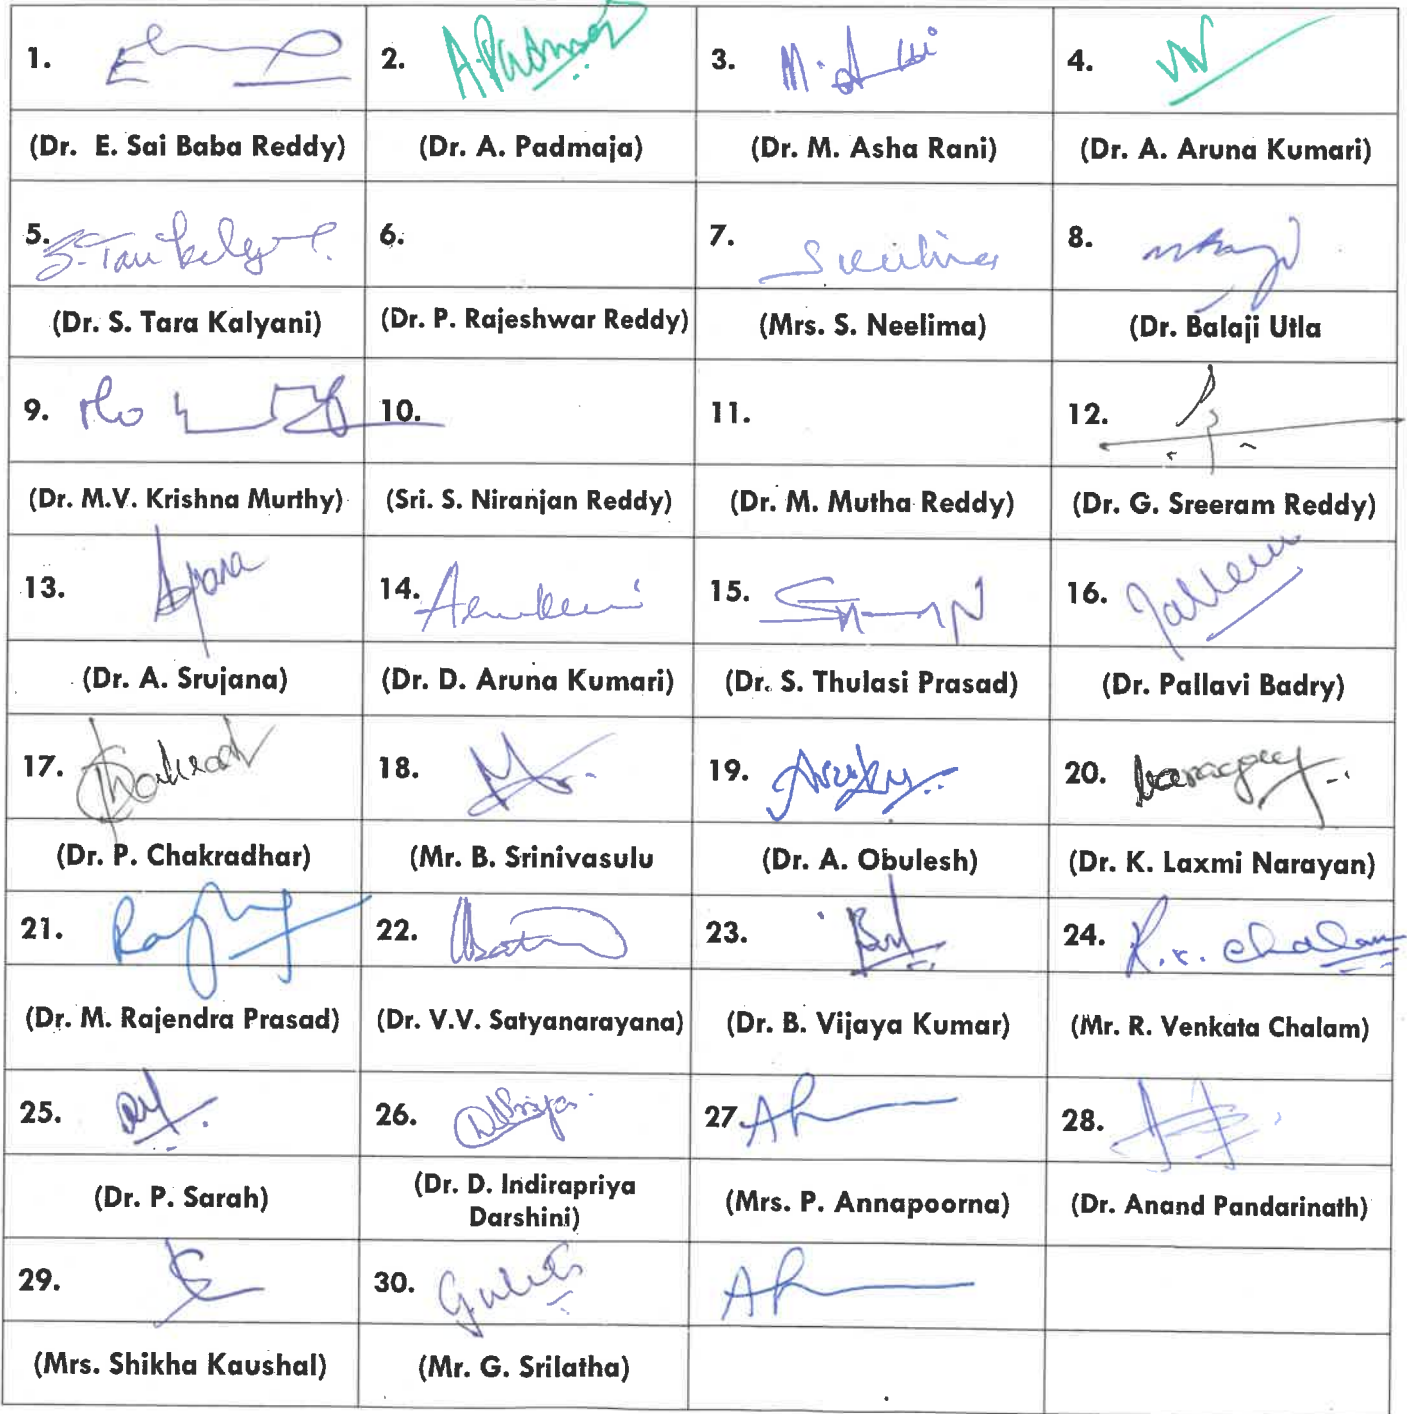 1. 2. A. Padmaja 3. 4.
(Dr. E. Sai Baba Reddy) (Dr. A. Padmaja) (Dr. M. Asha Rani) (Dr. A. Aruna Kumari)
5. 6. 7. 8.
(Dr. S. Tara Kalyani) (Dr. P. Rajeshwar Reddy) (Mrs. S. Neelima) (Dr. Balaji Utla
9. 10. 11. 12.
(Dr. M.V. Krishna Murthy) (Sri. S. Niranjan Reddy) (Dr. M. Mutha Reddy) (Dr. G. Sreeram Reddy)
13. 14. 15. 16.
(Dr. A. Srujana) (Dr. D. Aruna Kumari) (Dr. S. Thulasi Prasad) (Dr. Pallavi Badry)
17. 18. 19. 20.
(Dr. P. Chakradhar) (Mr. B. Srinivasulu (Dr. A. Obulesh) (Dr. K. Laxmi Narayan)
21. 22. 23. 24. R.V. Chalam
(Dr. M. Rajendra Prasad) (Dr. V.V. Satyanarayana) (Dr. B. Vijaya Kumar) (Mr. R. Venkata Chalam)
25. 26. 27 28.
(Dr. P. Sarah) (Dr. D. Indirapriya Darshini) (Mrs. P. Annapoorna) (Dr. Anand Pandarinath)
29. 30.
(Mrs. Shikha Kaushal) (Mr. G. Srilatha)